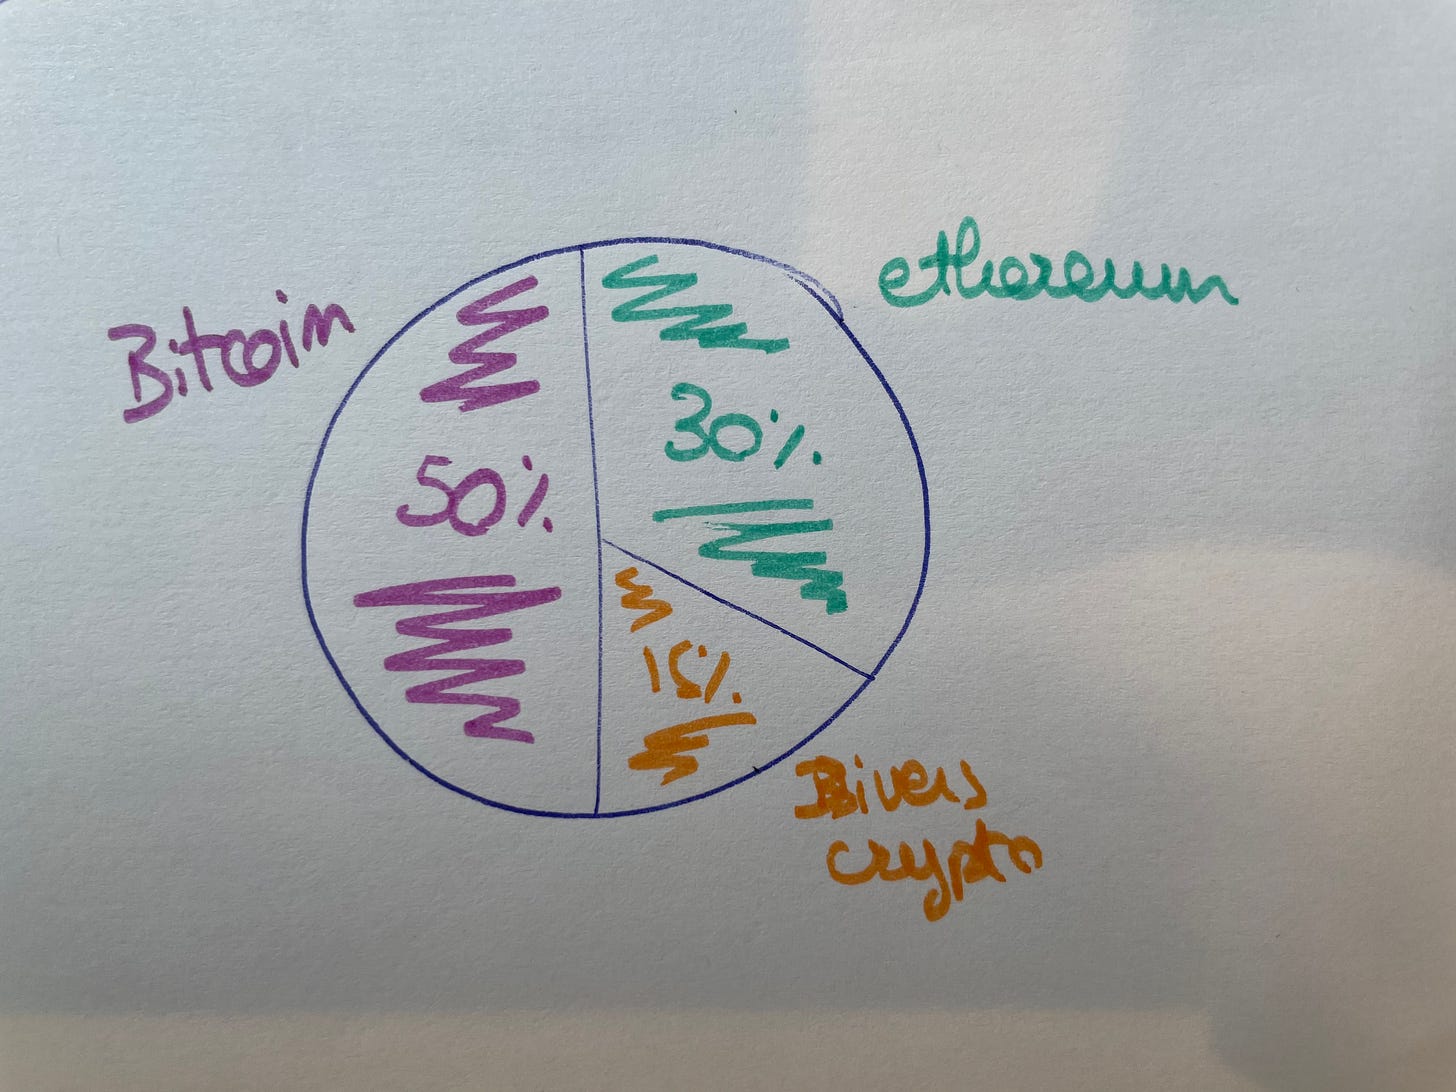 Bitcoin
ethereum
50%
30%
15%
Divers
crypto